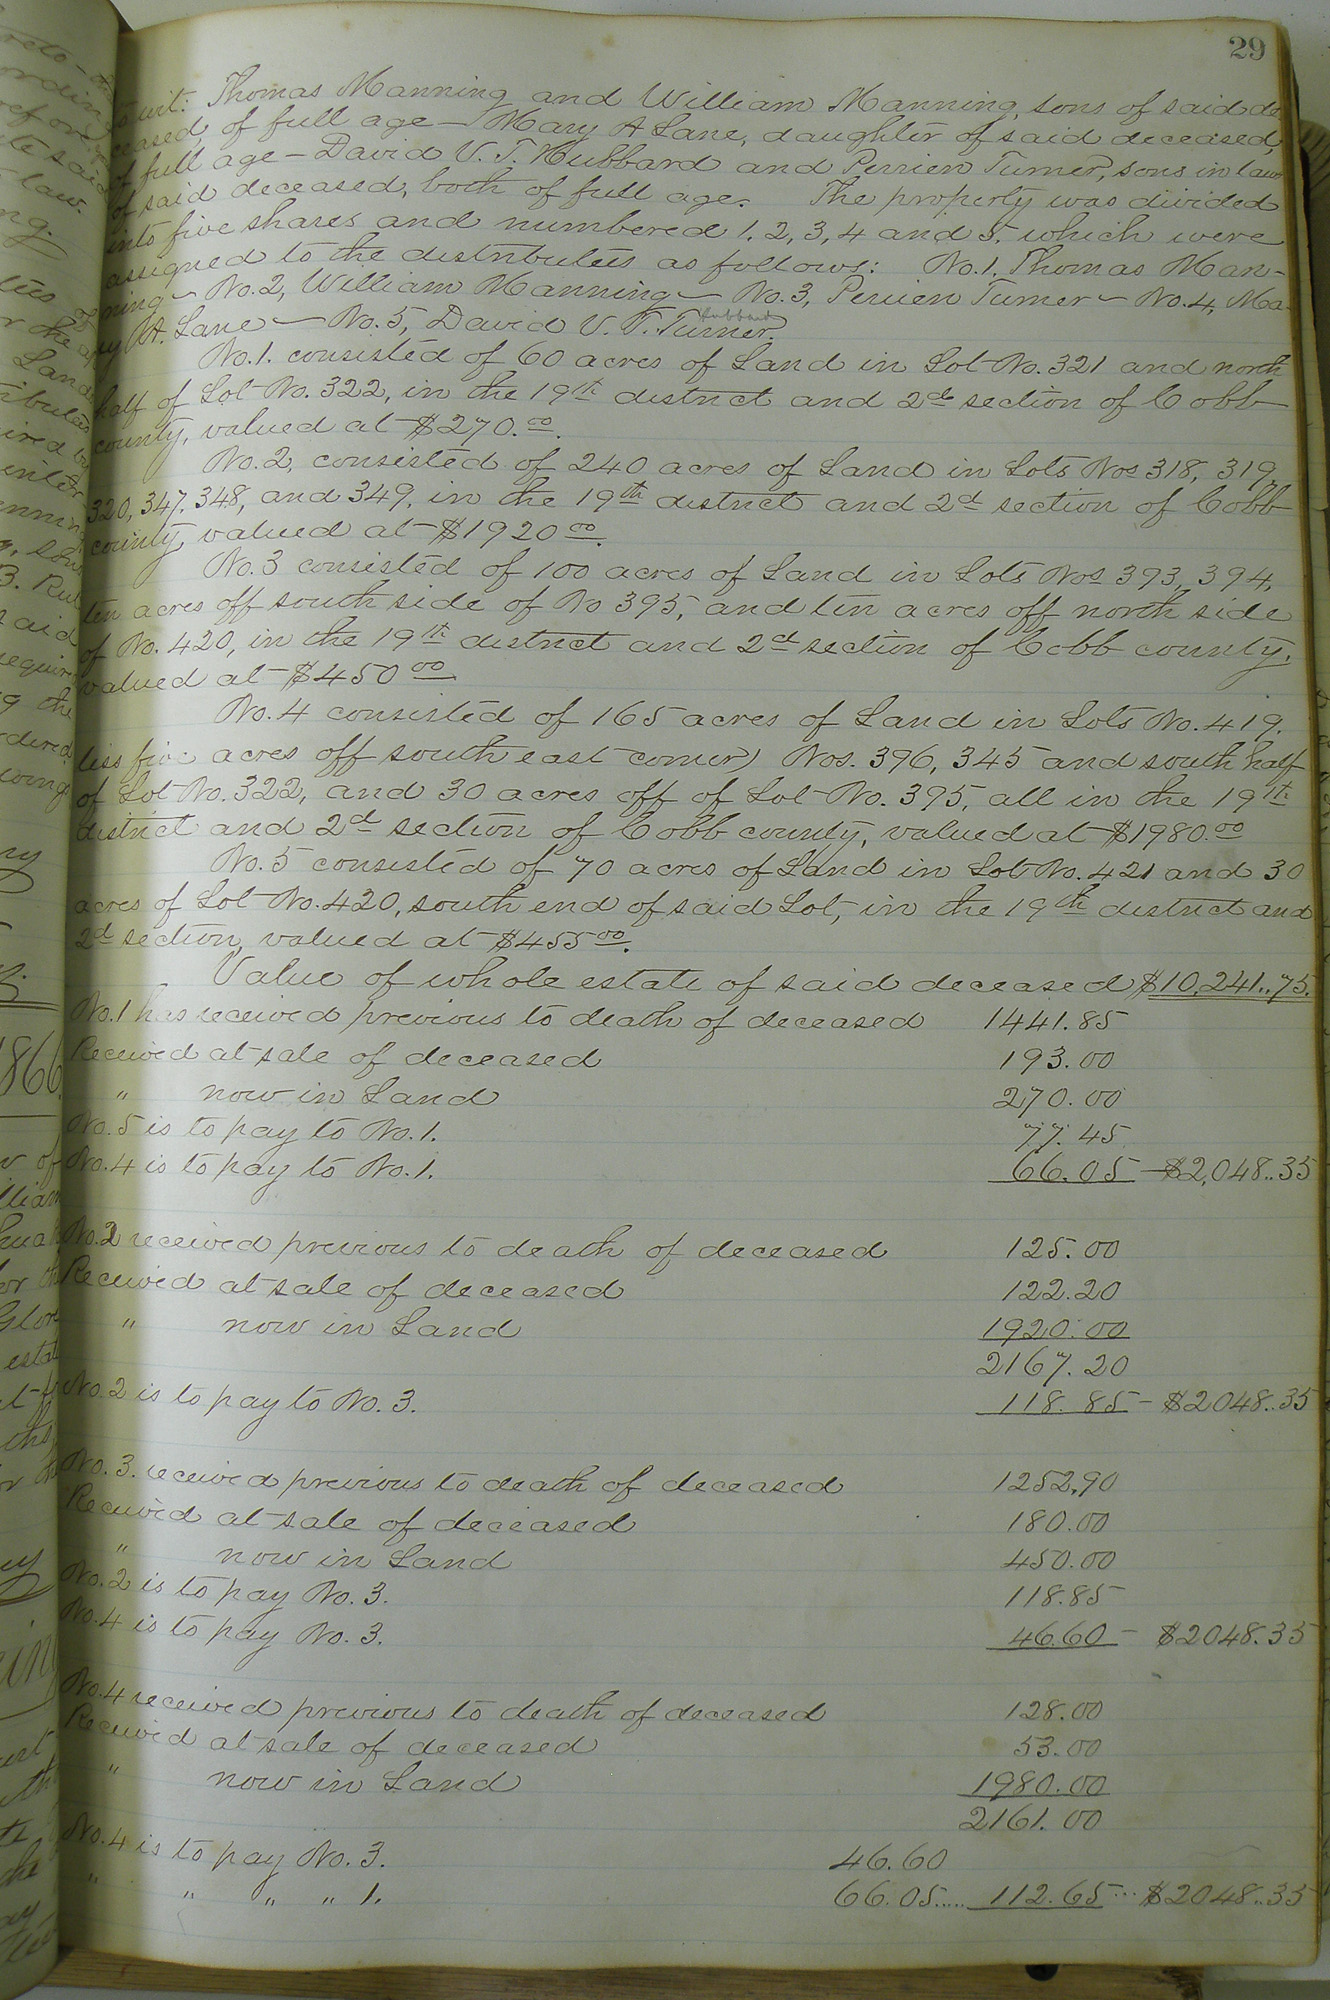 29
to wit: Thomas Manning and William Manning, sons of said de-
ceased, of full age — Mary A Lane, daughter of said deceased,
of full age — David V. T. Hubbard and Perrien Turner, sons in law
of said deceased, both of full age. The property was divided
into five shares and numbered 1, 2, 3, 4 and 5, which were
assigned to the distributees as follows: No. 1, Thomas Man-
ning — No. 2, William Manning — No. 3, Perrien Turner — No. 4, Ma-
ry A. Lane — No. 5, David V. T. Turner.
Hubbard
No. 1. consisted of 60 acres of Land in Lot No. 321 and north
half of Lot No. 322, in the 19th district and 2d section of Cobb
county, valued at $270.00.
No. 2, consisted of 240 acres of Land in Lots Nos 318, 319,
320, 347, 348, and 349, in the 19th district and 2d section of Cobb
county, valued at $1920.00.
No. 3 consisted of 100 acres of Land in Lots Nos 393, 394,
ten acres off south side of No 395, and ten acres off north side
of No. 420, in the 19th district and 2d section of Cobb county,
valued at $450.00
No. 4 consisted of 165 acres of Land in Lots No. 419,
less five acres off south east corner) Nos. 396, 345 and south half
of Lot No. 322, and 30 acres off of Lot No. 395, all in the 19th
district and 2d section of Cobb county, valued at $1980.00
No. 5 consisted of 70 acres of Land in Lot No. 421 and 30
acres of Lot No. 420, south end of said Lot, in the 19th district and
2d section, valued at $455.00.
Value of whole estate of said deceased $10,241..75.
No. 1 has received previous to death of deceased 1441.85
Received at sale of deceased 193.00
" now in Land 270.00
No. 5 is to pay to No. 1. 77.45
No. 4 is to pay to No. 1. 66.05 — $2,048..35
No. 2 received previous to death of deceased 125.00
Received at sale of deceased 122.20
" now in Land 1920.00
2167.20
No. 2 is to pay to No. 3. 118.85 — $2048..35
No. 3. received previous to death of deceased 1252.90
Received at sale of deceased 180.00
" now in Land 450.00
No. 2 is to pay No. 3. 118.85
No. 4 is to pay No. 3. 46.60 — $2048.35
No. 4 received previous to death of deceased 128.00
Received at sale of deceased 53.00
" now in Land 1980.00
2161.00
No. 4 is to pay No. 3. 46.60
" " " " 1. 66.05..... 112.65... $2048..35